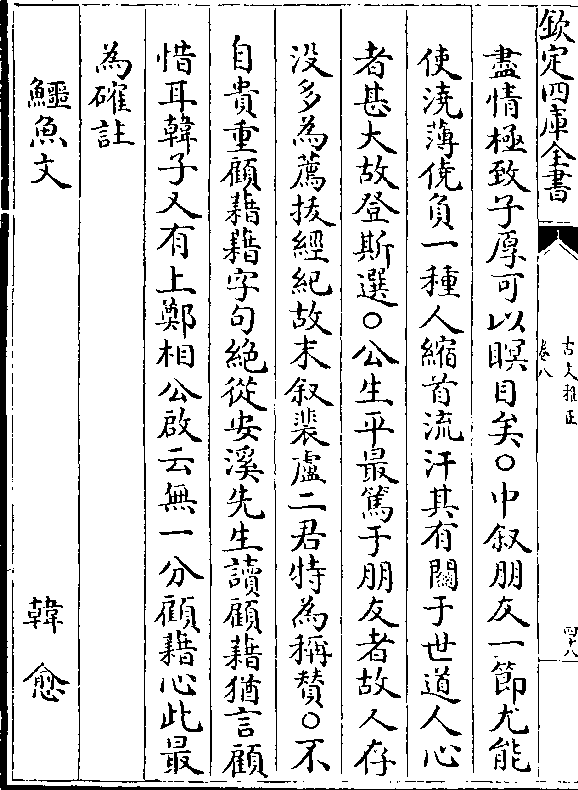 欽定四庫全書
古文雅正
卷八
四十八
盡情極致子厚可以瞑目矣○中叙朋友一節尤能
使澆薄俛負一種人縮首流汗其有關于世道人心
者甚大故登斯選○公生平最篤于朋友者故人存
没多為薦拔經紀故末叙裴盧二君特為稱賛○不
自貴重顧藉藉字句絶從安溪先生讀顧藉猶言顧
惜耳韓子又有上鄭相公啟云無一分顧藉心此最
為確註
鱷魚文 韓愈